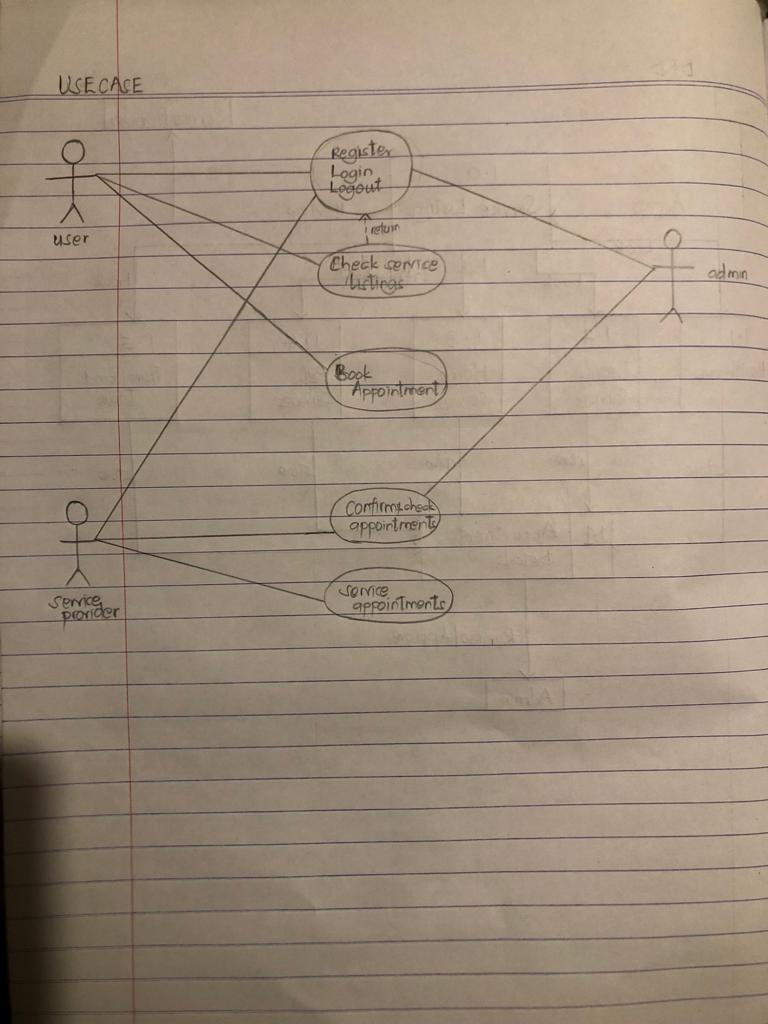 USECASE
Register
Login
Logout
user
return
Check service
listings
admin
Book
Appointment
Confirm+check
appointments
service
provider
service
appointments